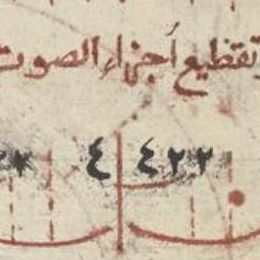 وتقطيع أجزاء الصوت
٤٢٢ ٤